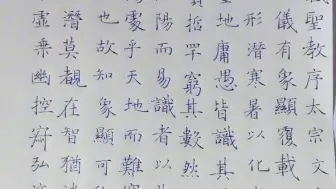 聖教序太宗文
儀有象顯覆載
形潛寒暑以化
地庸愚皆識其
哲罕窮其數然
陽而易識者以
處乎天地而難
也故知象顯可
潛莫覩在智猶
虛乘幽控寂弘